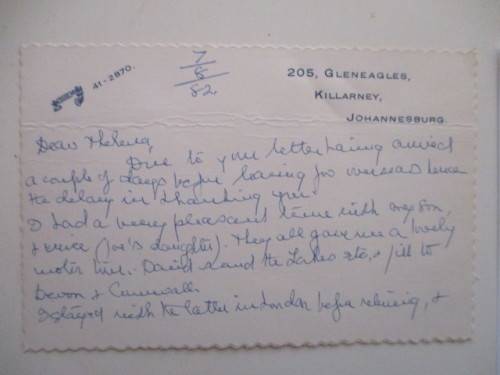 41-2870.
7
8
82
205, GLENEAGLES,
KILLARNEY,
JOHANNESBURG
Dear Thelma,
Due to your letter having arrived
a couple of days before leaving for overseas hence
the delay in thanking you.
I had a very pleasant time with my son,
& niece (Joe's daughter). They all gave me a lovely
motor tour. David around the Lakes etc, & Jill to
Devon & Cornwall.
I stayed with the latter in London before returning, &